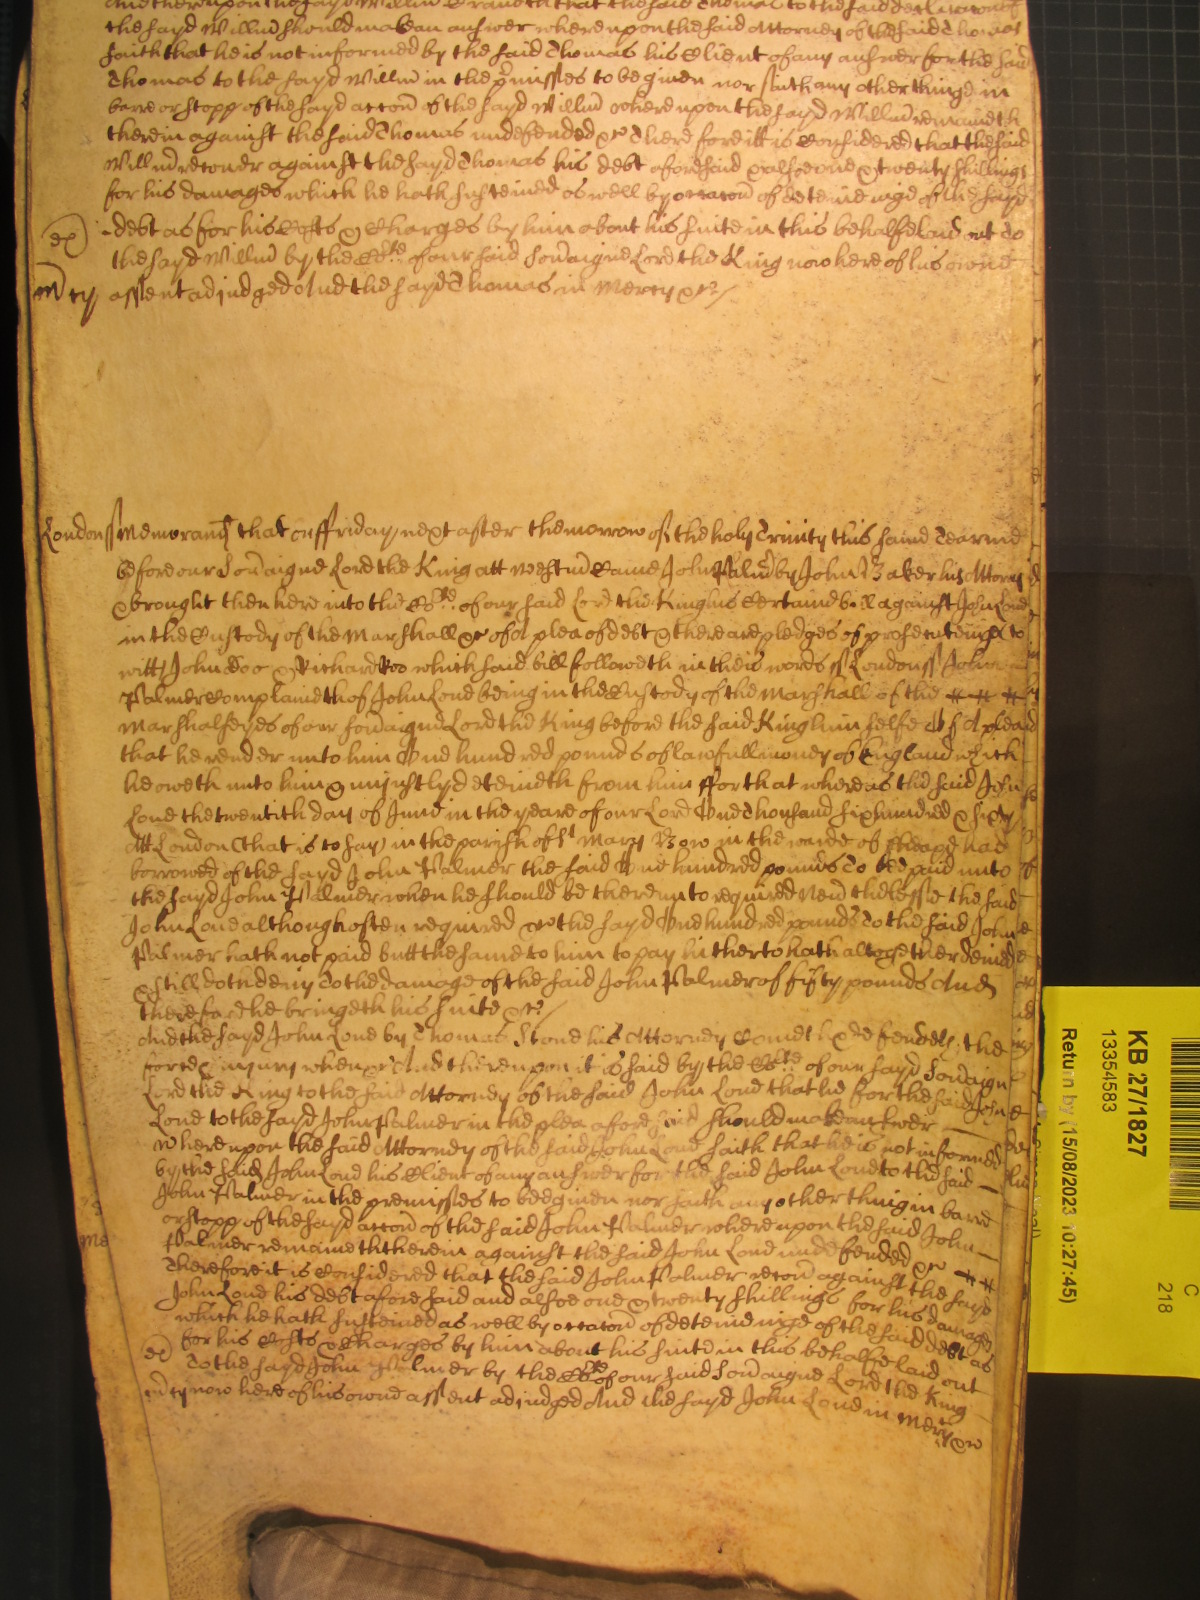 And thereupon the sayd Willm̃ that the said Thomas to the said
the sayd Willm̃ should make an answer whereupon the said Attorney of the said Thomas
saith that he is not informed by the said Thomas his Client of any answer for the said
Thomas to the sayd Willm̃ in the p̃misses to be given nor saith any other thinge in
barre or stopp of the sayd accoñ of the sayd Willm̃ whereupon the sayd Willm̃ remaineth
therein against the said Thomas undefended &c Therefore itt is Considered that the said
Willm̃ recover against the sayd Thomas his debt aforesaid & alsoe one & twenty shillings
for his damages which he hath susteined as well by occacoñ of deteineinge of the sayd
debt as for his Costs & Charges by him about his suite in this behalfe laid out to
the sayd Willm̃ by the Crte of our said Soṽaigne Lord the King now here of his owne
m̃cy assent adjudged And the sayd Thomas in Mercy &c
London ss Memorand̃ that on ffriday next after the morrow of the holy Trinity this same Tearme
before our Soṽaigne Lord the King att Westm̃ Came John Palm̃ by John Baker his Attorney
& brought then here into the Crte of our said Lord the King his Certaine bill against John Lone
in the Custody of the Marshall &c of A plea of debt & there are pledges of prosecuteinge to
witt John Doo & Richard Roo which said bill followeth in theis words ss London ss John
Palmer Complaineth of John Lone being in the Custody of the Marshall of the
Marshalseyes of our Soṽaigne Lord the King before the said King him selfe Of A plea
that he render unto him One hundred pounds of lawfull money of England which
he oweth unto him & unjustly deteineth from him ffor that whereas the said John
Lone the twentith day of June in the yeare of our Lord One Thousand six hundred & sixty
Att London (that is to say) in the parish of St Mary Bow in the warde of Cheape had
borrowed of the sayd John Palmer the said One hundred pounds To bee paid unto
the sayd John Palmer when he should be thereunto required Nev̄theless the said
John Lone although often required &c the sayd One hundred pounds To the said John
Palmer hath not paid butt the same to him to pay hitherto hath altogether denied
& still doth deny To the damage of the said John Palmer of fifty pounds And
therefore he bringeth his suite &c
And the sayd John Lone by Thomas Stone his Attorney Cometh & defendeth the
force & injury when &c And thereupon it is said by the Crte of our sayd Soṽaigne
Lord the King to the said Attorney of the said John Lone that he for the said John
Lone to the sayd John Palmer in the plea aforesaid should make answer
Whereupon the said Attorney of the said John Lone saith that he is not informed
by the said John Lone his Client of any answer for the said John Lone to the said
John Palmer in the premisses to bee given nor saith any other thing in barre
or stopp of the sayd accoñ of the said John Palmer whereupon the said John
Palmer remaineth therein against the said John Lone undefended &c
Therefore it is Considered that the said John Palmer recov̄ against the sayd
John Lone his debt aforesaid and alsoe one & twenty shillings for his damages
which he hath susteined as well by occacoñ of deteineinge of the said debt as
for his Costs & Charges by him about his suite in this behalfe laid out
To the sayd John Palmer by the Crte of our said Soṽaigne Lord the King
m̃cy now here of his owne assent adjudged And the sayd John Lone in Mercy &c
KB 27/1827
13354583
Return by (15/08/2023 10:27:45)
C
218